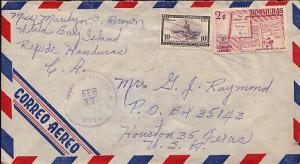 Miss Marilyn S. Brown
Utila Bay Island
Rep. de Honduras
C. A.
10
2¢
HONDURAS
FEB
17
Mrs. G. J. Raymond
P. O. Box 35143
Houston 35, Texas
U. S. A.
CORREO AEREO